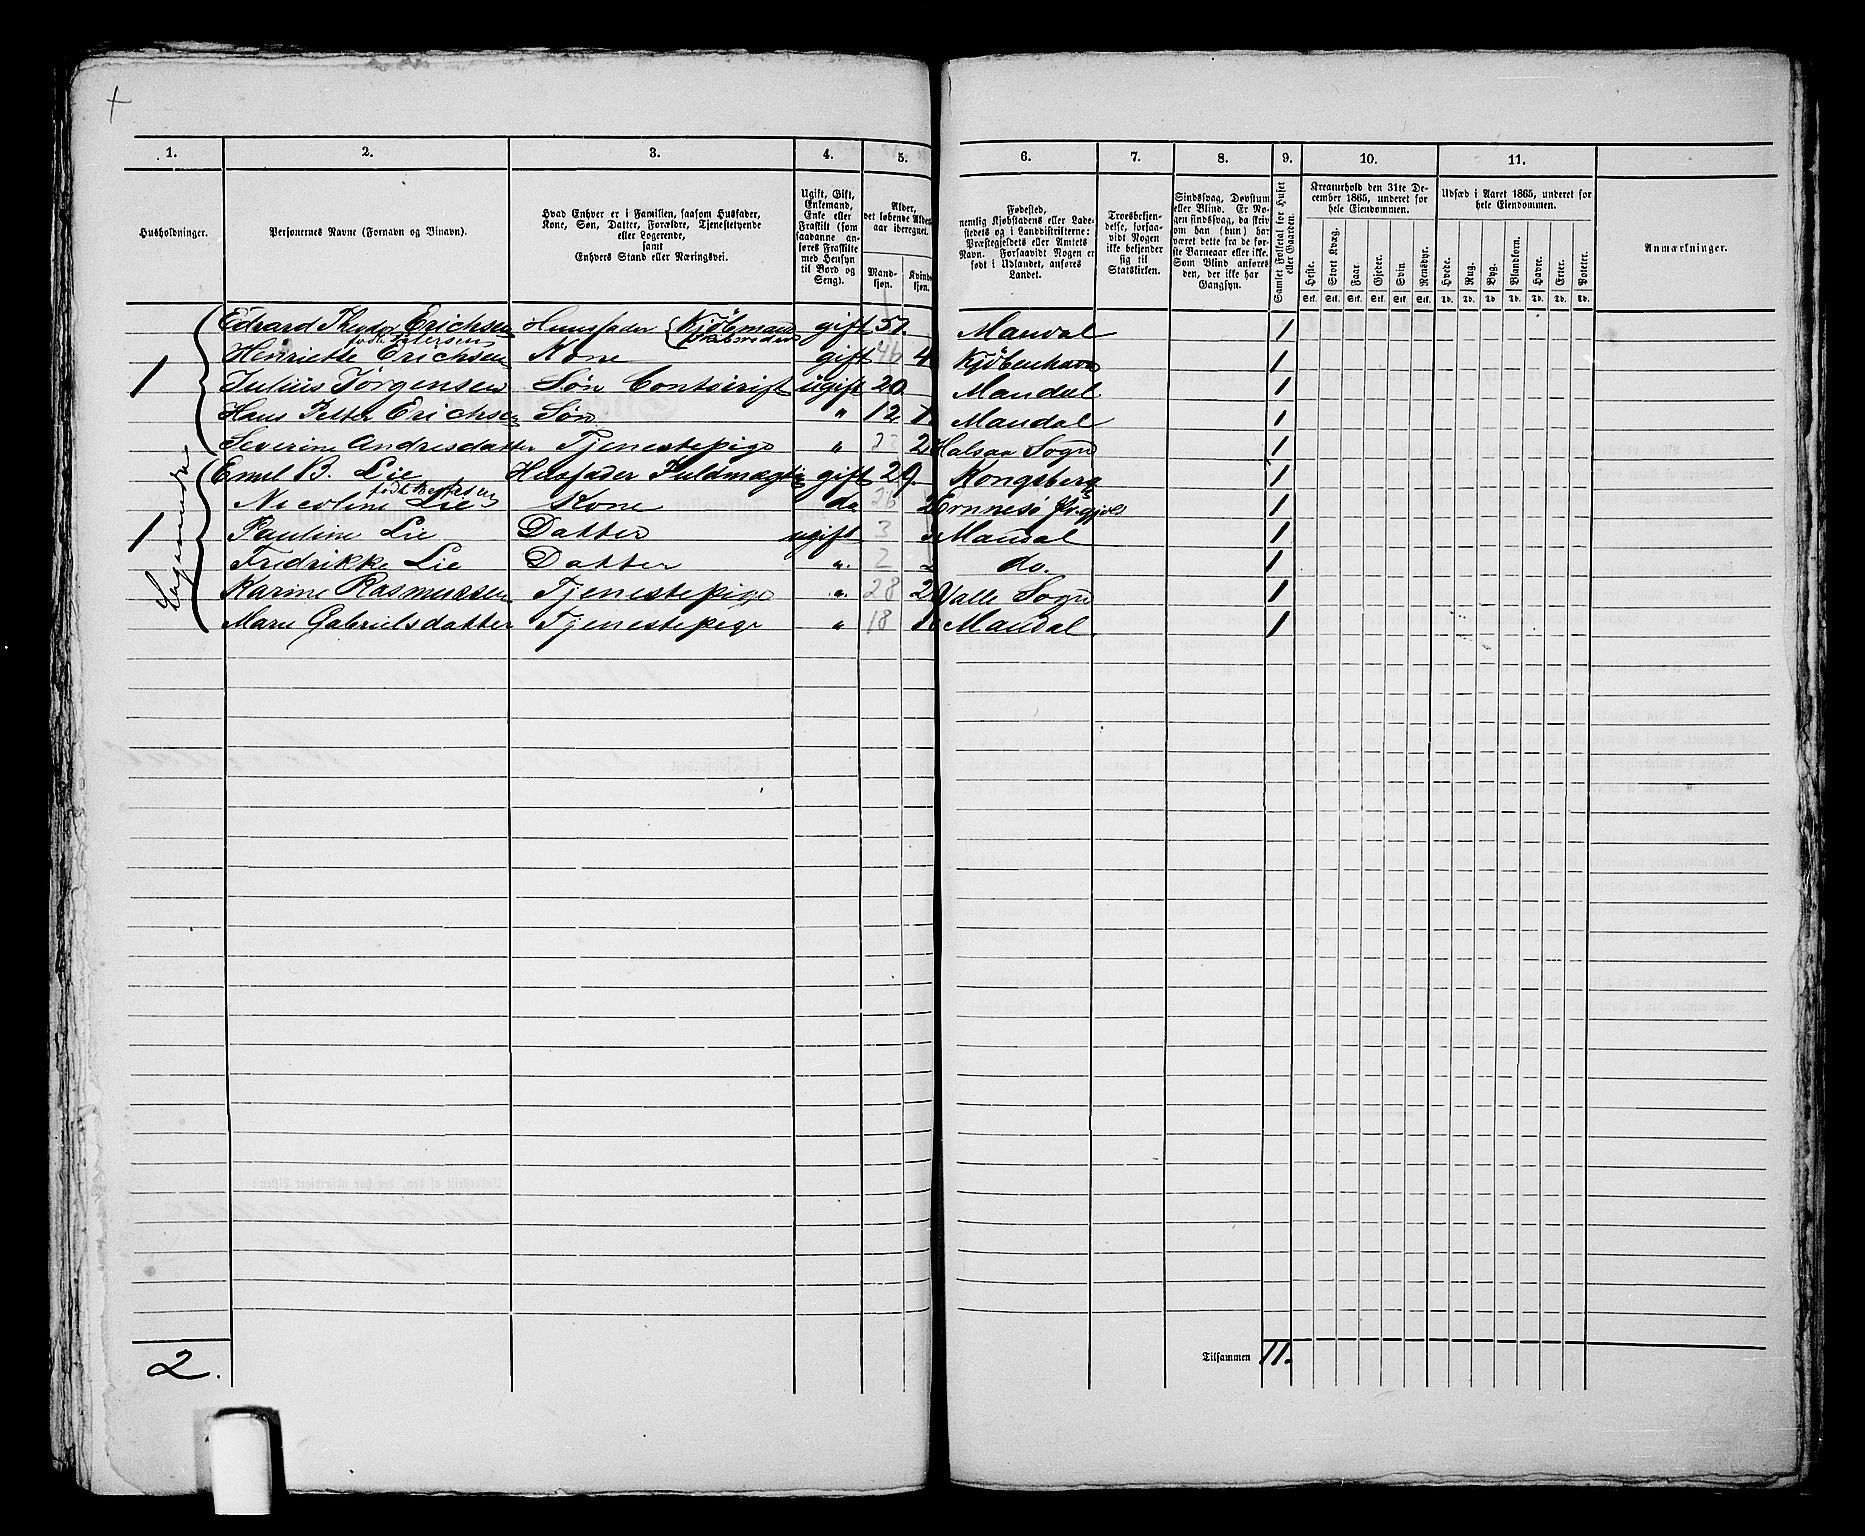 1. 2. 3. 4. 5. 6. 7. 8. 9. 10. 11.
Husholdninger.
Personernes Navne (Fornavn og Binavn).
Hvad Enhver er i Familien, saasom Husfader,
Kone, Søn, Datter, Forældre, Tjenestetyende
eller Logerende,
samt
Enhvers Stand eller Næringsvei.
Ugift, Gift,
Enkemand,
Enke eller
Fraskilt (som
saadanne an-
føres Fraskilte
med Hensyn
til Bord og
Seng).
Alder,
det løbende Alders-
aar iberegnet.
Mand-
kjøn.
Kvinde-
kjøn.
Fødested,
nemlig Kjøbstadens eller Lade-
stedets og i Landdistrikterne:
Præstegjeldets eller Amtets
Navn. Forsaavidt Nogen er
født i Udlandet, anføres
Landet.
Troesbekjen-
delse, forsaa-
vidt Nogen
ikke bekjender
sig til
Statskirken.
Sindssvag, Døvstum
eller Blind. Er No-
gen sindssvag, da skriv
om han (hun) har
været dette fra de før-
ste Barneaar eller ikke.
Som Blind anføres
den, der ikke har
Gangsyn.
Samlet Folketal for Huset
eller Gaarden.
Kreaturhold den 31te De-
cember 1865, underet for
hele Eiendommen.
Heste. Stort Kvæg. Faar. Gjeder. Svin. Rensdyr.
Stk. Stk. Stk. Stk. Stk. Stk.
Udsæd i Aaret 1865, underet for
hele Eiendommen.
Hvede. Rug. Byg. Blandkorn. Havre. Erter. Poteter.
Td. Td. Td. Td. Td. Td. Td.
Anmærkninger.
Edvard Theodor Erichsen Huusfader Kjöbmand gift 57. Mandal 1
født Petersen
Henriette Erichsen Kone gift 46 4 Kjöbenhavn 1
1 Julius Jörgensen Søn Contoirist ugift 20 Mandal 1
Hans Petter Erichsen Søn " 12 1 Mandal 1
Severine Andresdatter Tjenestepige " 2 Halsaa Sogn 1
Logerende
Emil B. Lie Husfader Fuldmægtig gift 29. Kongsberg 1
Nicoline Lie Kone do 26 2 1
1 Pauline Lie Datter ugift 3 3 Mandal 1
Fredrikke Lie Datter ". 2 2 do. 1
Karine Rasmussen Tjenestepige ". 28 2 Valle Sogn 1
Marie Gabrielsdatter Tjenestepige " 18 1 Mandal. 1
2.
Tilsammen 11.